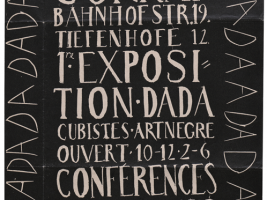 BAHNHOFSTR.19.
TIEFENHOFE 12.
1re EXPOSI
TION·DADA
CUBISTES·ARTNEGRE
OUVERT·10-12·2-6
CONFERENCES
DADADADA
DADAADADA